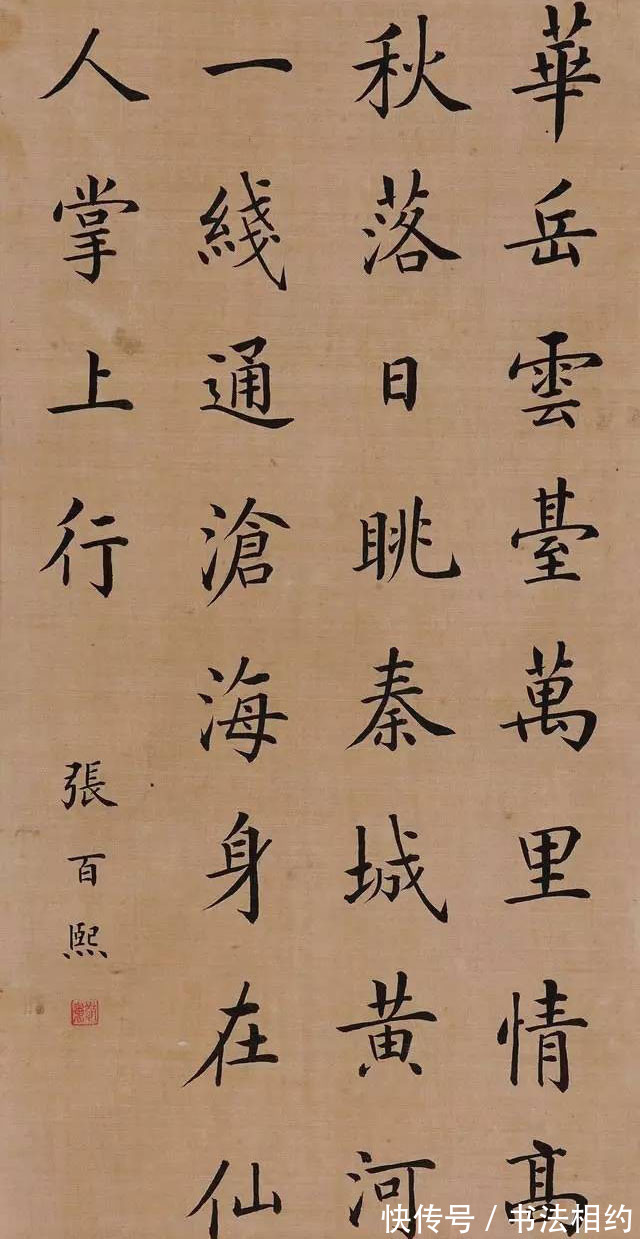 華岳雲臺萬里情高
秋落日眺秦城黄河
一綫通滄海身在仙
人掌上行
張百熙
快传号/书法相约